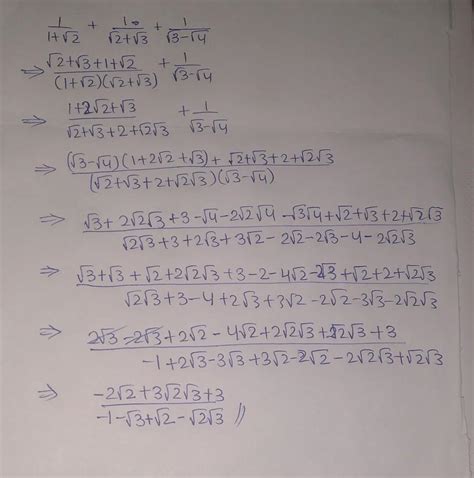 1/(1+√2) + 1/(√2+√3) + 1/(√3-√4)
⇒ (√2+√3+1+√2)/((1+√2)(√2+√3)) + 1/(√3-√4)
⇒ (1+2√2+√3)/(√2+√3+2+√2√3) + 1/(√3-√4)
⇒ ((√3-√4)(1+2√2+√3)+√2+√3+2+√2√3)/((√2+√3+2+√2√3)(√3-√4))
⇒ (√3+2√2√3+3-√4-2√2√4-√3√4+√2+√3+2+√2√3)/(√2√3+3+2√3+3√2-2√2-2√3-4-2√2√3)
⇒ (√3+√3+√2+2√2√3+3-2-4√2-2√3+√2+2+√2√3)/(√2√3+3-4+2√3+3√2-2√2-3√3-2√2√3)
⇒ (2√3-2√3+2√2-4√2+2√2√3+√2√3+3)/(-1+2√3-3√3+3√2-2√2-2√2√3+√2√3)
⇒ (-2√2+3√2√3+3)/(-1-√3+√2-√2√3) //